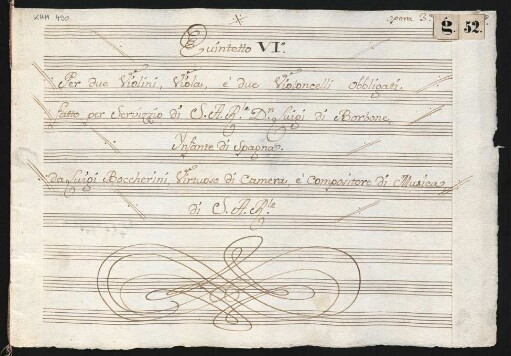 KHM 490
opera 3.
g. 52.
Quintetto VI.º
Per due Violini, Viola, è due Violoncelli obbligati.
fatto per Servizzio di S.A.R.le D.n Luigi di Borbone,
Infante di Spagna.
da Luigi Boccherini, Virtuoso di Camera, è Compositore di Musica,
di S.A.R.le